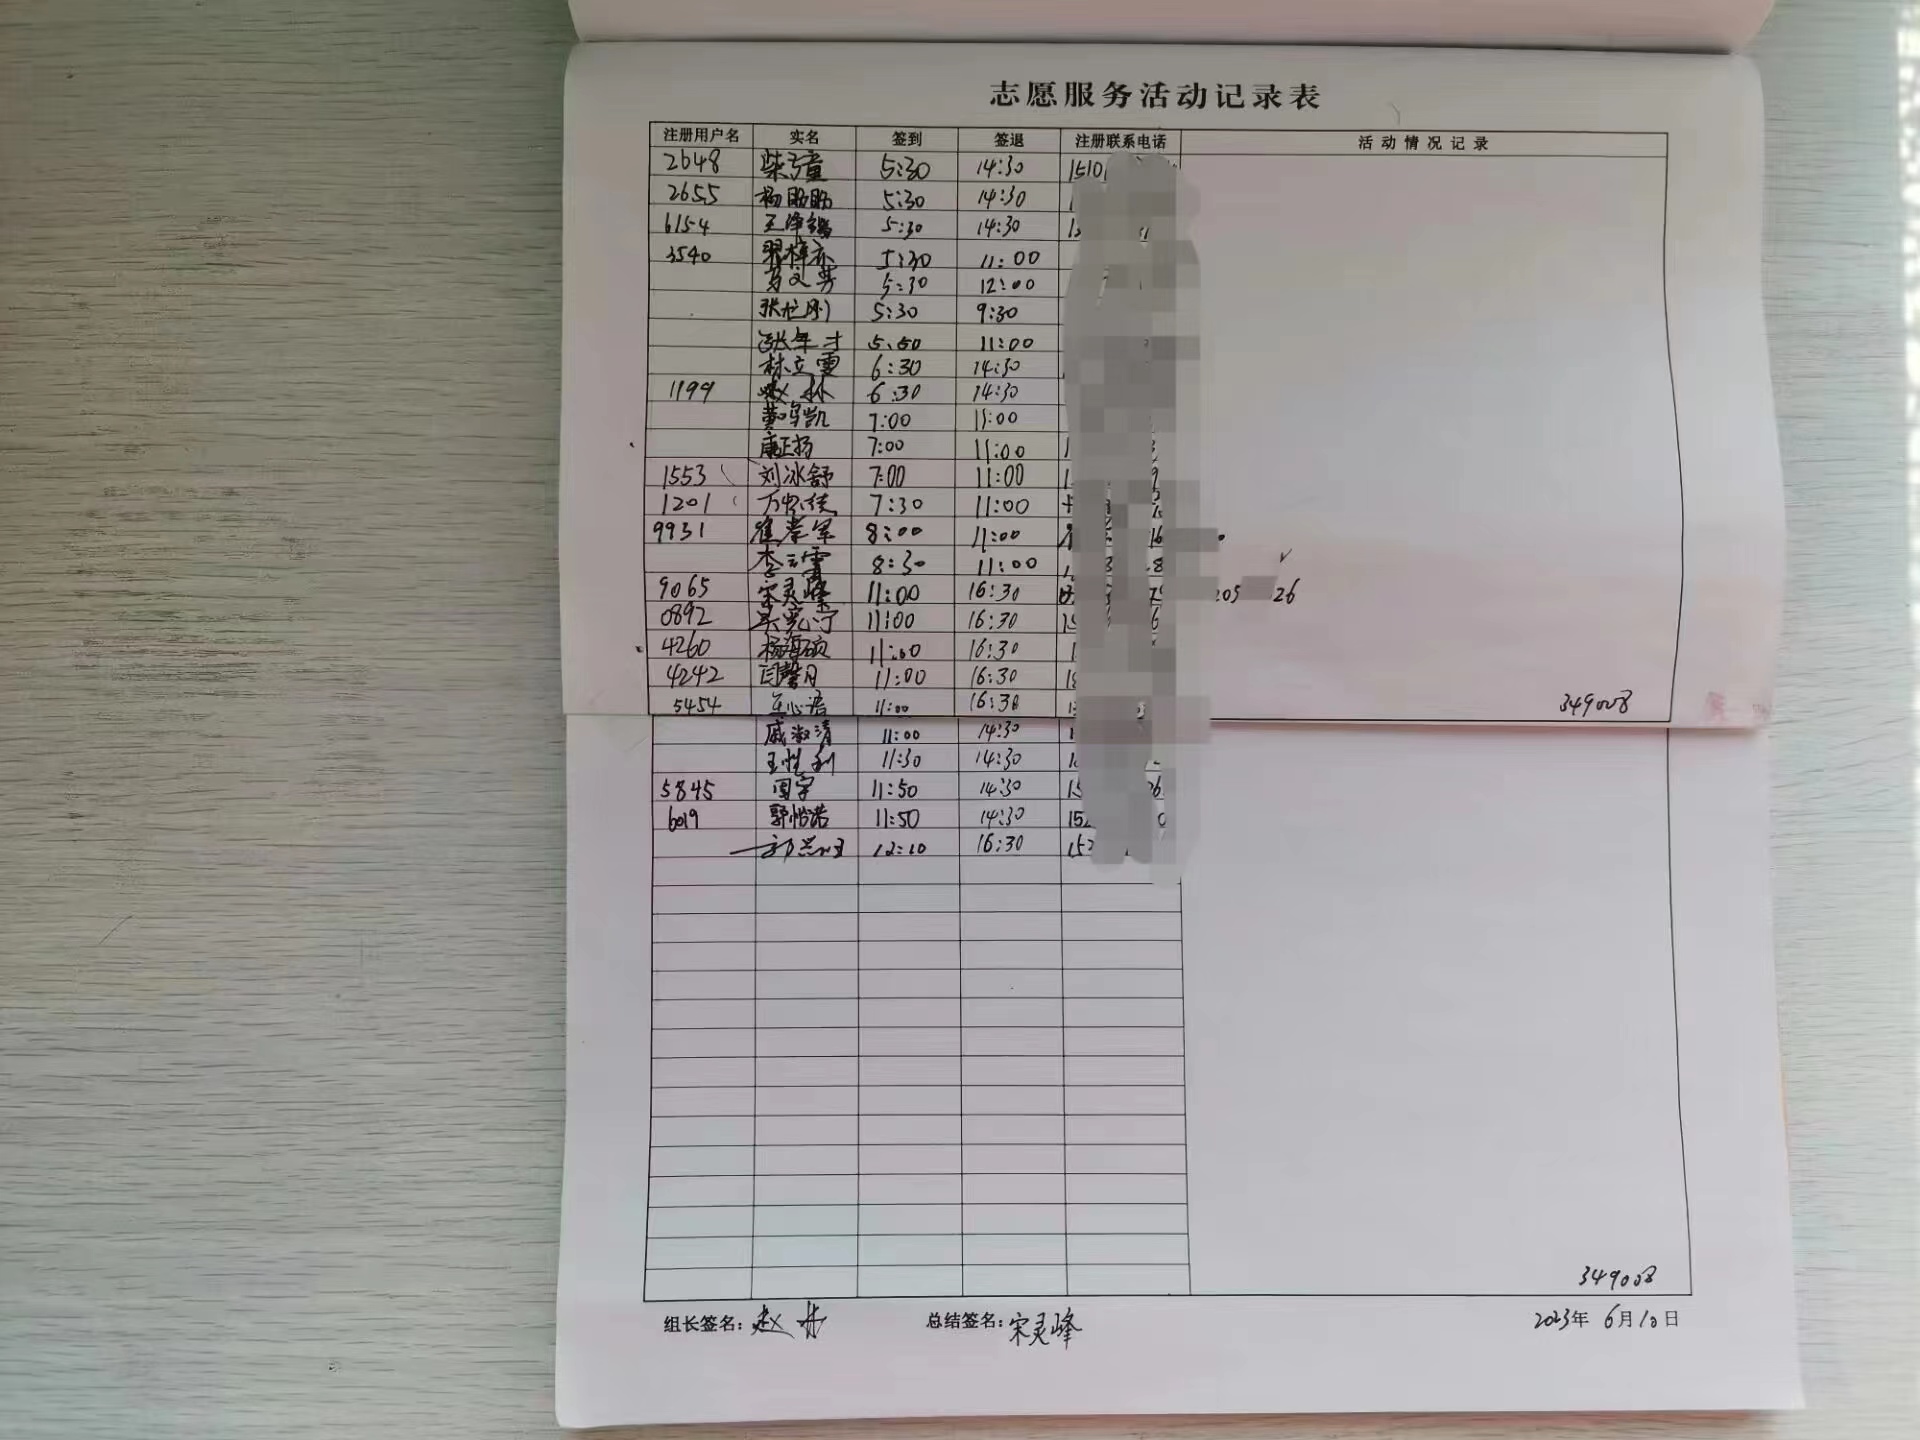 志愿服务活动记录表
注册用户名 实名 签到 签退 注册联系电话 活动情况记录
2648 柴子童 5:30 14:30 1510
2655 杨盼盼 5:30 14:30
6154 王 5:30 14:30
3540 5:30 11:00
5:30 12:00
张 刚 5:30 9:30
张年才 5:50 11:00
林立雪 6:30 14:30
1199 赵 6:30 14:30
黄 凯 7:00 11:00
康正扬 7:00 11:00
1553 刘冰舒 7:00 11:00
1201 万 7:30 11:00
9931 崔 军 8:00 11:00
李云霄 8:30 11:00
9065 宋灵峰 11:00 16:30 205 26
0892 11:00 16:30
4260 杨海硕 11:00 16:30
4242 闫馨月 11:00 16:30
5454 王心语 11:00 16:30
349008
戚淑清 11:00 14:30
王 利 11:30 14:30
5845 国宇 11:50 14:30
6019 郭怡诺 11:50 14:30 152
12:10 16:30 152
349008
组长签名: 赵 总结签名: 宋灵峰 2023年 6月10日